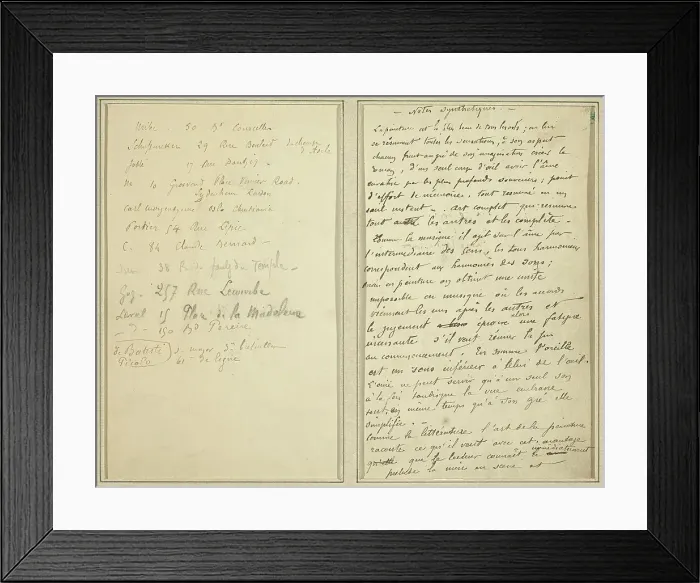 Mibe 50 Bd Courcelles
Schuffenecker 29 Rue Boulard
Jobbé
No 10 Place Xavier Road
Sydenham London
Christiania
Portier 54 Rue Lepic
C. 84 Claude Bernard -
38 Rue du Temple -
Goz - 257 Rue Lecourbe
Laval 15 Place de la Madeleine
D - 150 Bd Pereire
de ligne
- Notes Synthétiques. -
La peinture est le plus beau de tous les arts; en lui
se résument toutes les sensations, à son aspect
chacun peut au gré de son imagination créer le
roman, d'un seul coup d'œil avoir l'âme
envahie par les plus profonds souvenirs; point
d'effort de mémoire, tout résumé en un
seul instant. - Art complet qui résume
tous les autres et les complète. -
Comme la musique il agit sur l'âme par
l'intermédiaire des sens, les tons harmonieux
correspondent aux harmonies des sons;
mais en peinture on obtient une unité
impossible en musique où les accords
viennent les uns après les autres et
le jugement éprouve alors une fatigue
incessante s'il veut réunir la fin
au commencement. En somme l'oreille
est un sens inférieur à celui de l'œil.
L'ouïe ne peut servir qu'à un seul son
à la fois tandis que la vue embrasse
tout, en même temps qu'à son gré elle
simplifie. -
Comme la littérature l'art de la peinture
raconte ce qu'il veut avec cet avantage
que le lecteur connaît immédiatement
le prélude la mise en scène et